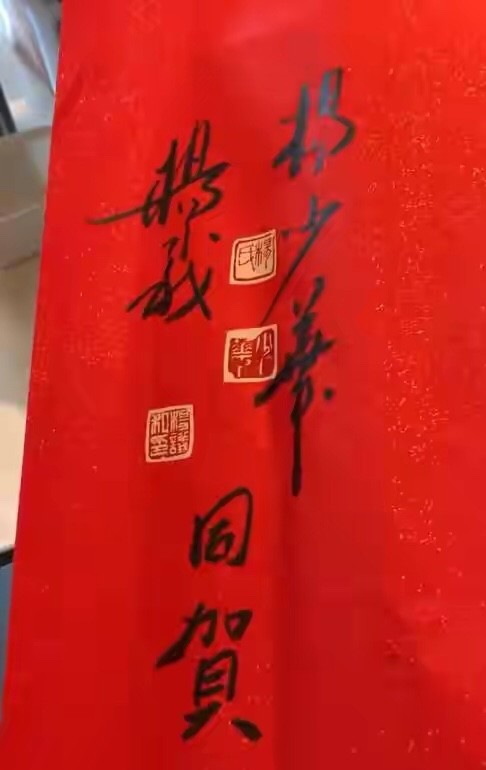 楊少華
楊氏
少華
楊議
楊議私印
同賀